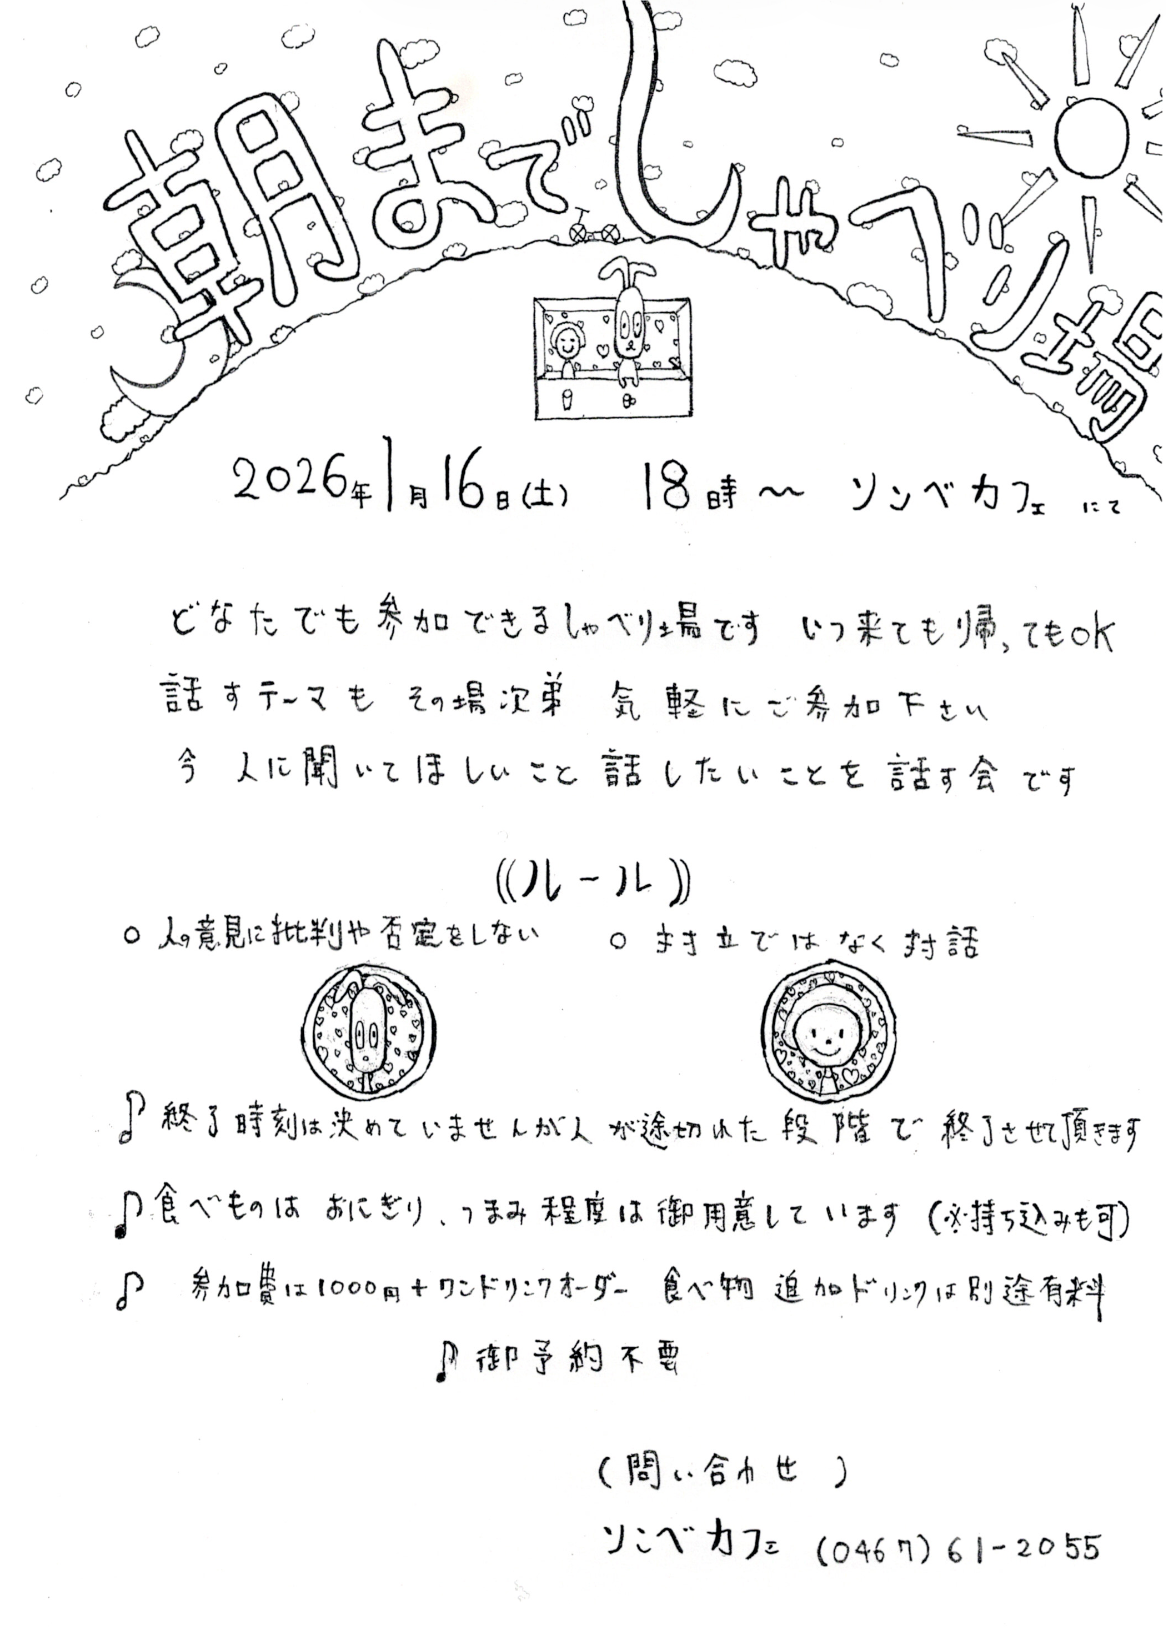 朝までしゃべり場
2026年1月16日(土) 18時〜 ソンベカフェ にて
どなたでも参加できるしゃべり場です いつ来ても帰ってもOK
話すテーマも その場次第 気軽にご参加下さい
今 人に聞いてほしいこと 話したいことを 話す会です
((ルール))
○ 人の意見に批判や否定をしない ○ 対立ではなく対話
♪ 終了時刻は決めていませんが人が途切れた段階で終了させて頂きます
♪ 食べものは おにぎり、つまみ程度は御用意しています (※持ち込みも可)
♪ 参加費は1000円+ワンドリンクオーダー 食べ物 追加ドリンクは別途有料
♪ 御予約不要
(問い合わせ)
ソンベカフェ (0467)61-2055